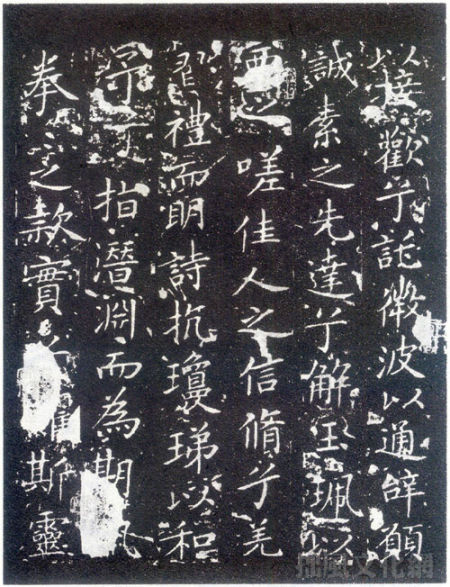 以接歡兮託微波以通辭願
誠素之先達兮解玉珮以
要之嗟佳人之信脩兮羌
習禮而明詩抗瓊珶以和
予兮指潛淵而為期執
拳〻之款實兮懼斯靈